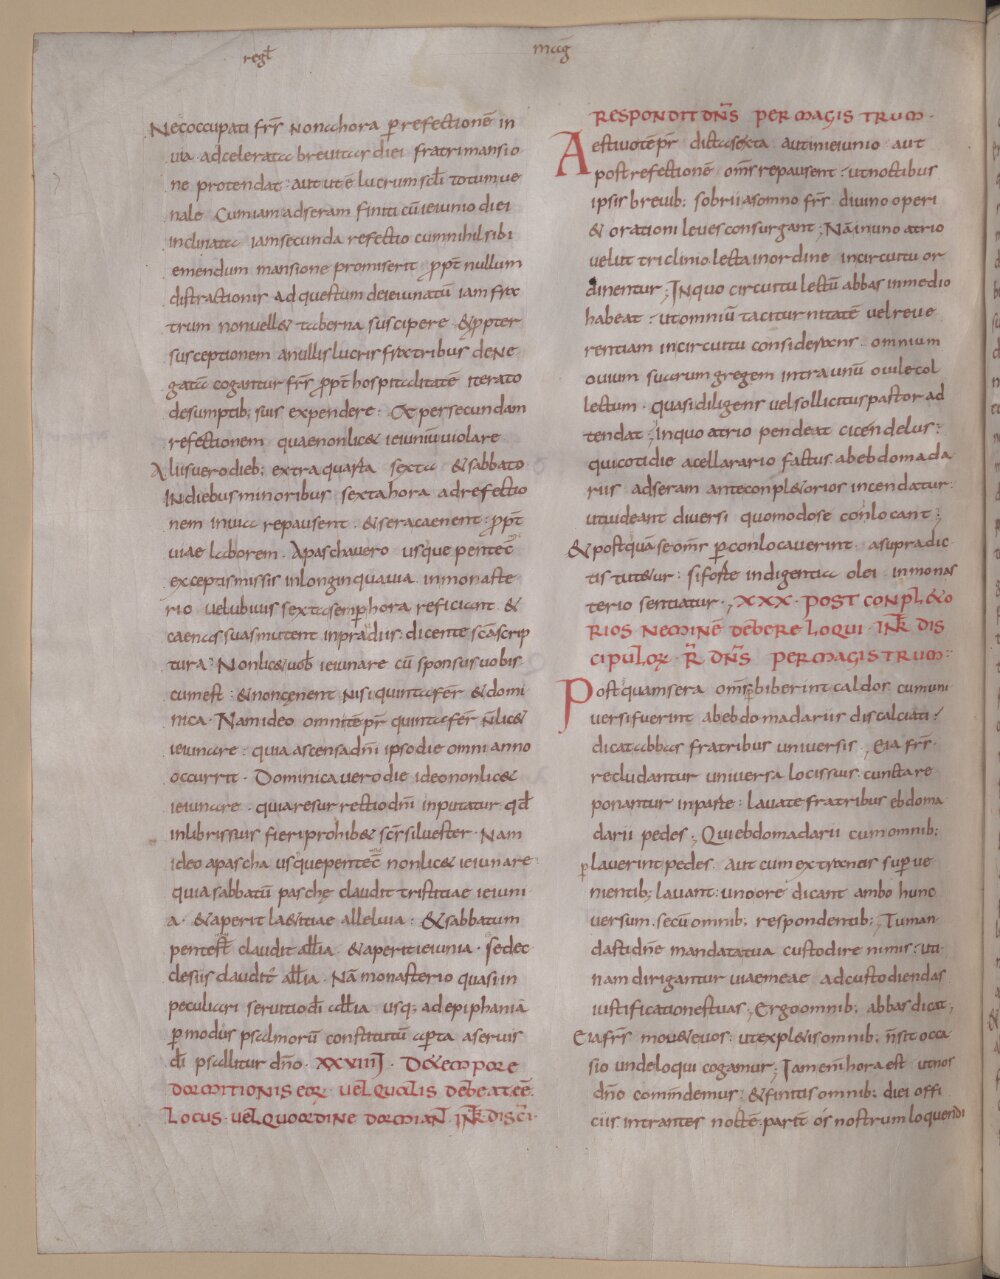 regl̄
mag̅
Necoccupati fr̄s nonahora p̱refectionē in
uia adceleratu breuitas diei fratri mansio
ne protendat: aut ut ē lucrum scl̄i totum ue
nale Cum iam ad seram finiti cū ieiunio diei
inclinata iam secunda refectio cum nihil sibi
emendum mansione promiserit p̱pt̄ nullum
distractionis ad questum deieiunatū iam fra
trum non uell& taberna suscipere &p̱pter
susceptionem a nullis lucris fratribus dene
gata cogantur fr̄s p̱pt̄ hospitalitatē iterato
desumptib; suis expendere: & per secundam
refectionem quae non lic& ieiuniū uiolare
Aliis uero dieb; extra quarta sexta & sabbato
In diebus minoribus sexta hora ad refectio
nem in uia repausent. & sera caenent: p̱pt̄
uiae laborem. A pascha uero usque pentec̄
exceptis missis in longinqua uia. in monaste
rio uel ubiuis sexta semp̱ hora reficiant &
caenas suas mutent in prandiis. dicente scā scrip
tura: Non lic& uob̄ ieiunare cū sponsus uobis
cum est: & non cenent nisi quinta fer̄ & domi
nica. Nam ideo omnitēpr̄ quinta fer̄ n̄ lic&
ieiunare: quia ascensa dn̄i ipso die omni anno
occurrit. Dominica uero die ideo non lic&
ieiunare. quia resurrectio dn̄i inputatur qd̄
in libris suis fieri prohib& sc̄s siluester. Nam
ideo a pascha usque pentec̄ non lic& ieiunare
quia sabbatū pasche claudit tristitiae ieiuni
a. & aperit la&itiae alleluia: & sabbatum
pentesī claudit all̄ia & aperit ieiunia. Sed ec
clesiis claudit̄ all̄ia. Nā monasterio quasi in
peculiari seruitio dī all̄ia usq; ad epiphania
p̱ modus psalmorū constitutū aperta a seruis
dī psallitur dn̄o. XXVIIII. De tempore
dormitionis eor̄ uel qualis debeat eē
locus uel quo ordine dormian̄ Īn̄t̄ disci.
Respondit dn̄s per magistrum.
Aestiuo tēpr̄ dicta sexta aut in ieiunio aut
post refectionē om̄s repausent: ut noctibus
ipsis breuib; sobrii a somno fr̄s diuino operi
& orationi leues consurgant; Nā in uno atrio
uelut triclinio lecta in ordine in circuitu or
dinentur; In quo circuitu lectū abbas in medio
habeat: ut omniū taciturnitatē uel reue
rentiam in circuitu considerans omnium
ouium suarum gregem intra unū ouile col
lectum. quasi diligens uel sollicitus pastor ad
tendat; In quo atrio pendeat cicendelus:
qui cotidie a cellarario factus ab ebdomada
riis ad seram ante conpl&orios incendatur:
ut uideant diuersi quomodo se conlocant;
& postquā se om̄s p̱conlocauerint a supradic
tis tut&ur: si forte indigentia olei in monas
terio sentiatur; XXX. Post conpl&o
rios neminē debere loqui. Int̄ dis
cipulor̄ R̄ dn̄s per magistrum:
Postquam sera om̄s biberint caldos cum uni
uersi fuerint ab ebdomadariis discalciati:
dicat abbas fratribus uniuersis; Eia fr̄s
recludantur uniuersa loci ssuis cuncta re
ponantur in parte: lauate fratribus ebdoma
darii pedes; Qui ebdomadarii cum omnib;
p̱lauerint pedes. aut cum extraneis superue
nientib; lauant: uno ore dicant ambo hunc
uersum. secū omnib; respondentib; Tu man
dasti dn̄e mandata tua custodire nimis: uti
nam dirigantur uiae meae ad custodiendas
iustificationes tuas; Ergo omnib; abbas dicat;
Eia fr̄s mou&e uos: ut expl&is omnib; n̄ sit occa
sio unde loqui cogamur; Iam enī hora est ut nos
dn̄o commendemus: & finitis omnib; diei offi
ciis intrantes noctē. pariī os nostrum loquendi